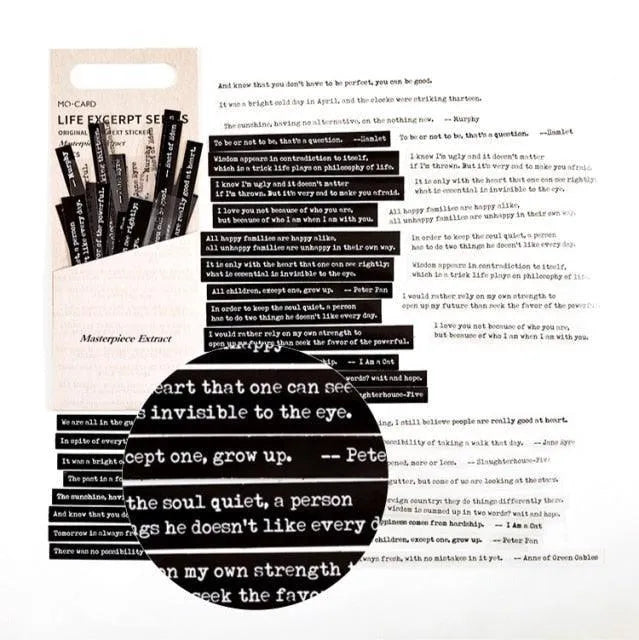 MO·CARD
LIFE EXCERPT SE S
ORIGINAL TEXT STICKER
Masterpiece Extract
Masterpiece Extract
And know that you don't have to be perfect, you can be good.
It was a bright cold day in April, and the clocks were striking thirteen.
The sunshine, having no alternative, on the nothing new. -- Murphy
To be or not to be, that's a question. --Hamlet
To be or not to be, that's a question. --Hamlet
Wisdom appears in contradiction to itself,
which is a trick life plays on philosophy of life.
I know I'm ugly and it doesn't matter
if I'm thrown. But it's very sad to make you afraid.
I know I'm ugly and it doesn't matter
if I'm thrown. But it's very sad to make you afraid.
It is only with the heart that one can see rightly;
what is essential is invisible to the eye.
I love you not because of who you are,
but because of who I am when I am with you.
All happy families are happy alike,
all unhappy families are unhappy in their own way.
All happy families are happy alike,
all unhappy families are unhappy in their own way.
In order to keep the soul quiet, a person
has to do two things he doesn't like every day.
It is only with the heart that one can see rightly;
what is essential is invisible to the eye.
Wisdom appears in contradiction to itself,
which is a trick life plays on philosophy of
All children, except one, grow up. -- Peter Pan
In order to keep the soul quiet, a person
has to do two things he doesn't like every day.
I would rather rely on my own strength to
open up my future than seek the favor of the powerful.
I would rather rely on my own strength to
open up my future than seek the favor of the powerful.
I love you not because of who you are,
but because of who I am when I am with you.
-- I Am a Cat
words? wait and hope.
ghterhouse-Five
eart that one can see
s invisible to the eye.
cept one, grow up. -- Pete
the soul quiet, a person
gs he doesn't like every d
n my own strength
seek the favo
We are all in the gu
In spite of everyt
It was a bright c
The past is a f
The sunshine, havi
And know that you d
Tomorrow is always fr
There was no possibility
ng, I still believe people are really good at heart.
ossibility of taking a walk that day. -- Jane Eyre
ened, more or less. -- Slaughterhouse-Five
gutter, but some of us are looking at the stars.
reign country: they do things differently there.
wisdom is summed up in two words? wait and hope.
ppiness comes from hardship. -- I Am a Cat
children, except one, grow up. -- Peter Pan
ways fresh, with no mistakes in it yet. -- Anne of Green Gables